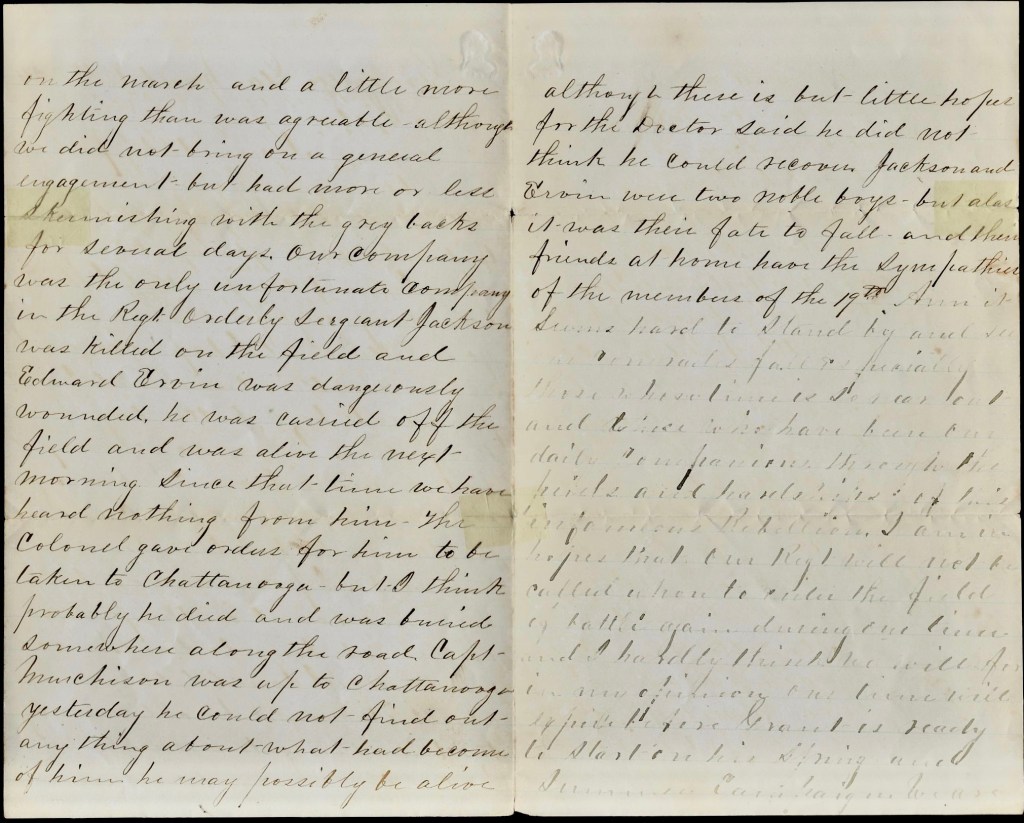 on the march and a little more
fighting than was agreeable - although
we did not bring on a general
engagement - but had more or less
skermishing with the grey backs
for several days. Our Company
was the only unfortunate Company
in the Regt Orderly Sergeant Jackson
was killed on the field and
Edward Ervin was dangerously
wounded, he was carried off the
field and was alive the next
morning Since that time we have
heard nothing from him - The
Colonel gave orders for him to be
taken to Chattanooga - but I think
probably he died and was buried
somewhere along the road. Capt
Murchison was up to Chattanooga
yesterday he could not find out
any thing about what had become
of him he may possibly be alive
although there is but little hopes
for the Doctor said he did not
think he could recover. Jackson and
Ervin were two noble boys - but alas
it was their fate to fall - and their
friends at home have the sympathies
of the members of the 19th Ann it
seems hard to stand by and see
our comrades fall especially
those whose time is so near out
and those who have been our
daily companions through the
perils and hardships of this
infamous Rebellion. I am in
hopes that our Regt will not be
called upon to enter the field
of battle again during our time
and I hardly think we will for
in my opinion our time will
expire before Grant is ready
to start on his Spring and
Summer Campaign We are